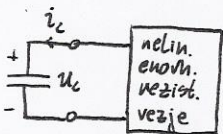 i_c
+
u_c
-
nelin.
enovh.
rezist.
vezje